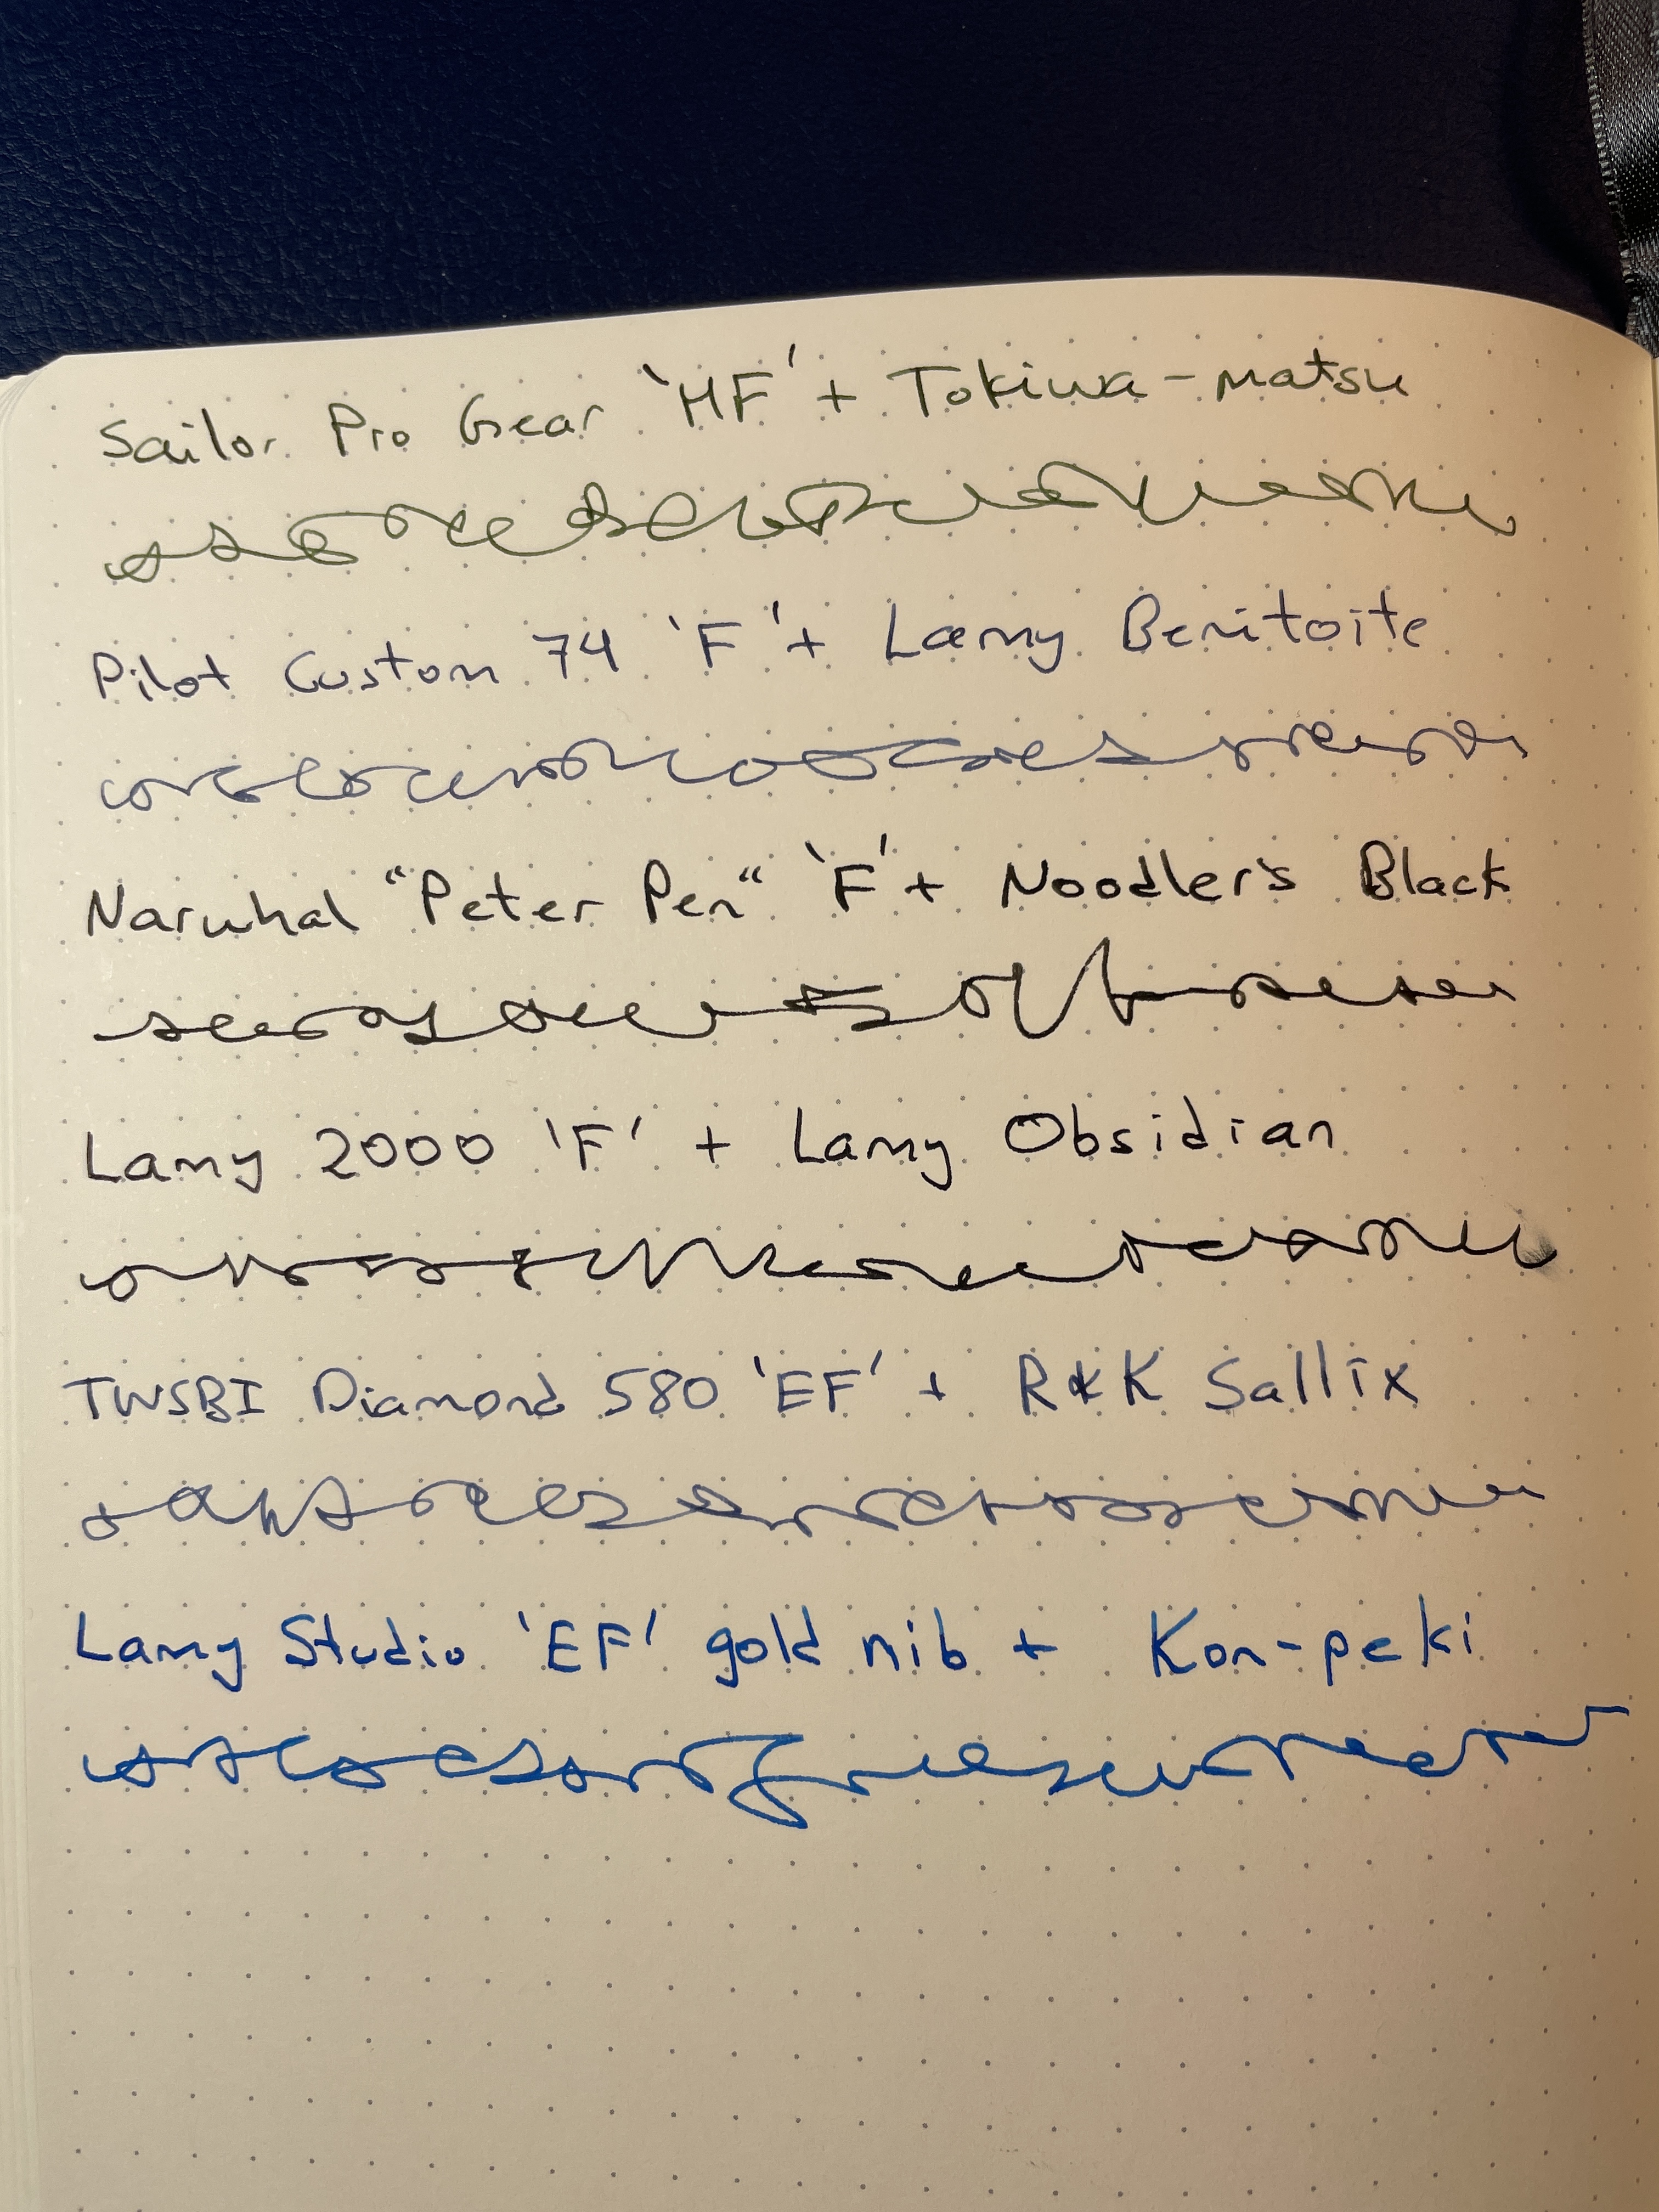 Sailor Pro Gear 'MF' + Tokiwa-matsu
Pilot Custom 74 'F' + Lamy Benitoite
Narwhal “Peter Pen“ 'F' + Noodler's Black
Lamy 2000 'F' + Lamy Obsidian
TWSBI Diamond 580 'EF' + R&K Sallix
Lamy Studio 'EF' gold nib + Kon-peki